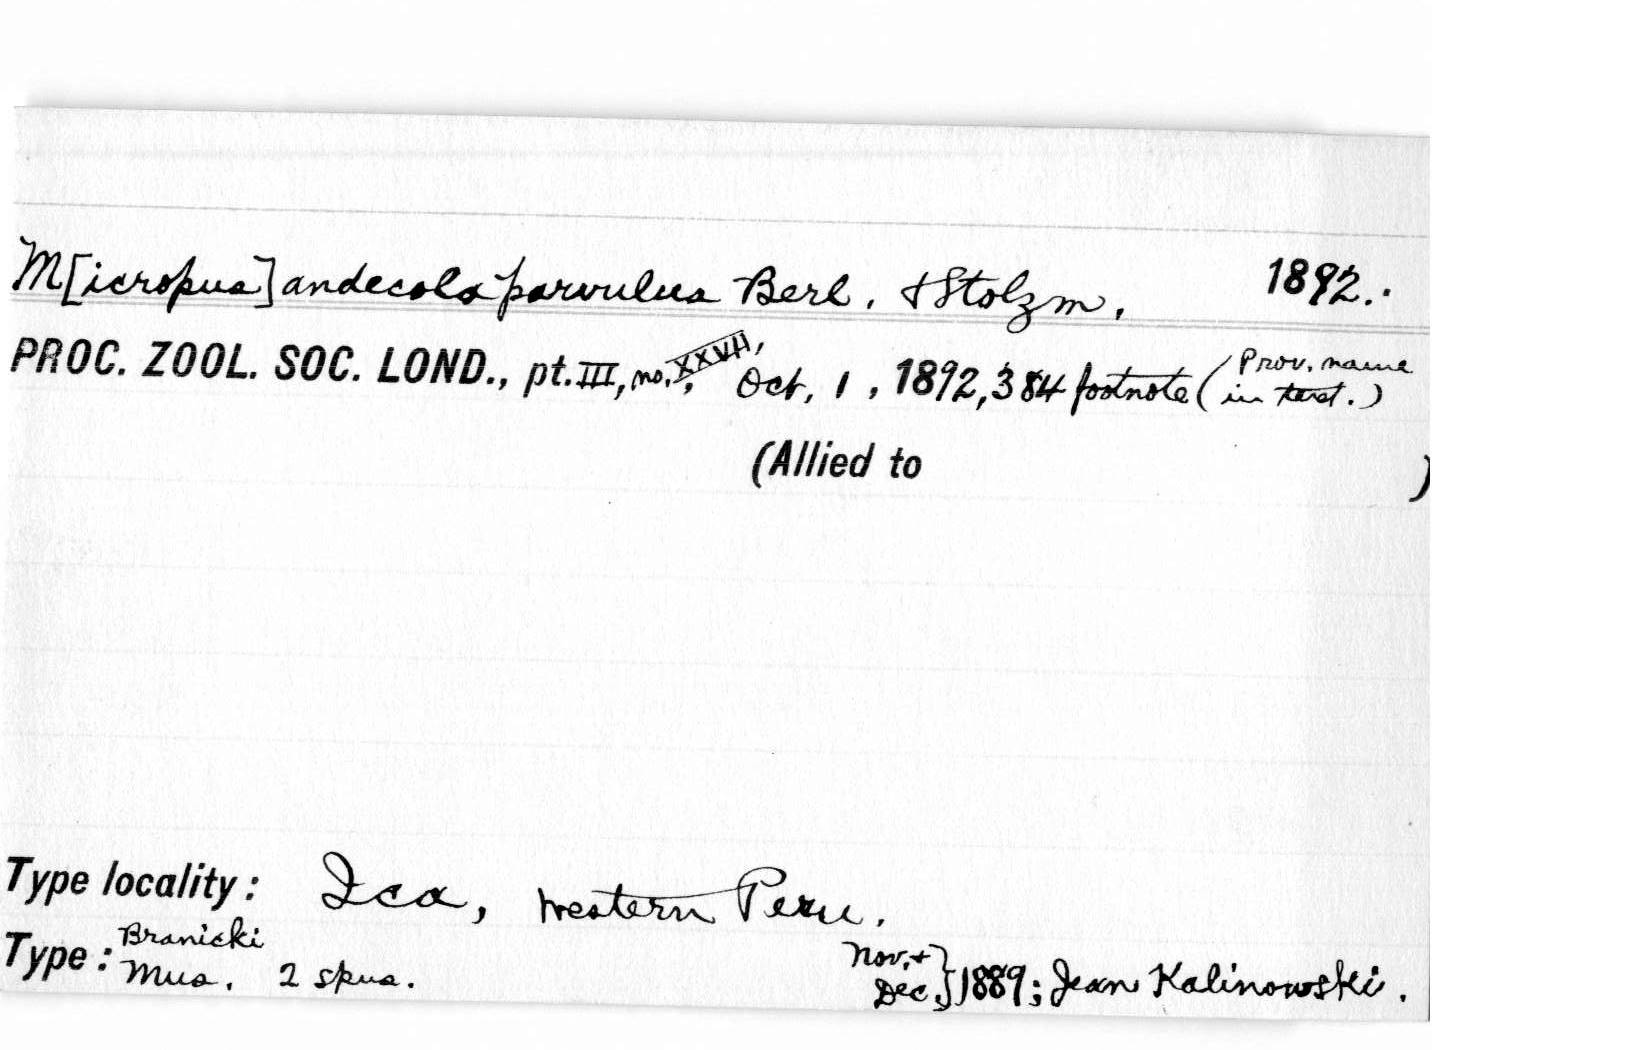 M[icropus] andecola parvulus Berl. & Stolzm. 1892.
PROC. ZOOL. SOC. LOND., pt. III, no. XXVII, Oct, 1, 1892, 384 footnote (Prov. name in text.)
(Allied to )
Type locality: Ica, western Peru.
Type: Branicki Mus. 2 spns. Nov. + Dec. } 1889; Jean Kalinowski.